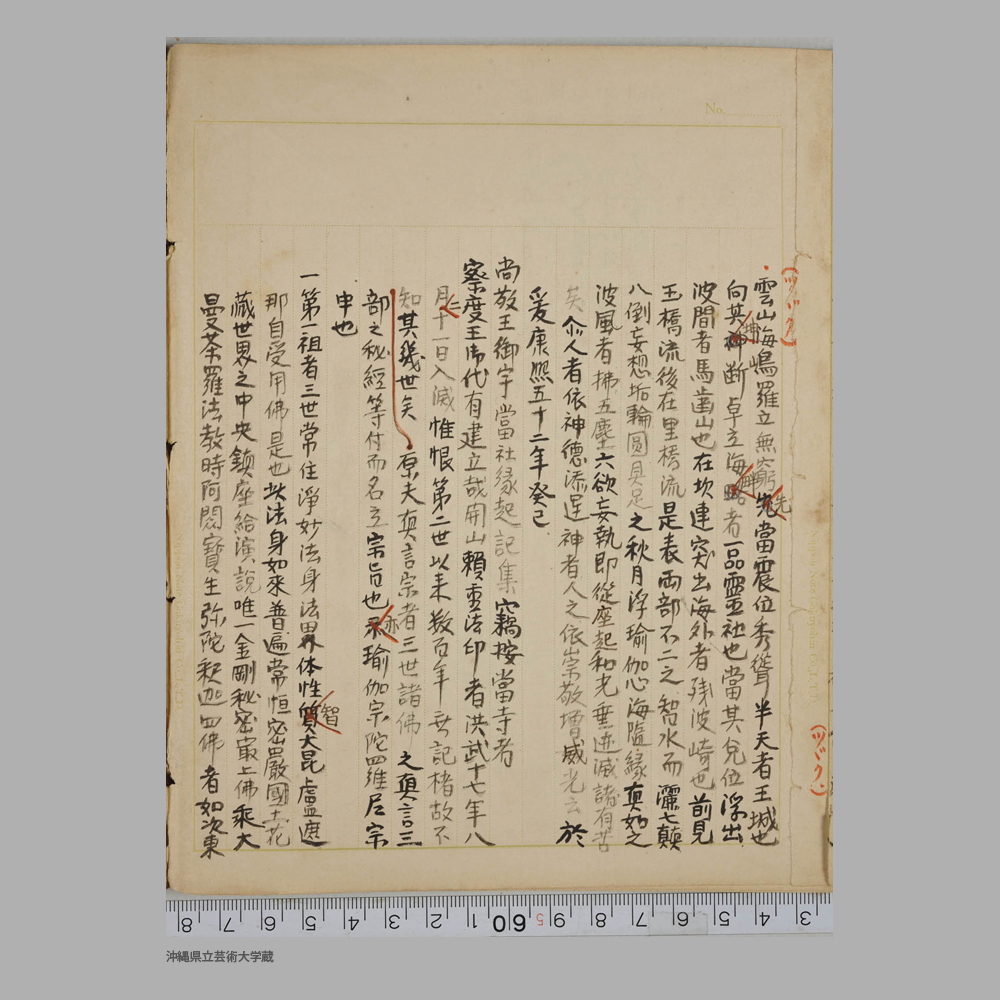 (ツヅク)
雲山海嶋羅立無窮先當震位秀聳半天者王城也
向其神断卓立海畔者一品靈社也當其兌位浮出
波間者馬歯山也在坎連突出海外者残波崎也前見
玉橋流後在里橋流是表両部不二之智水而灑七顛
八倒妄想垢輪圓具足之秋月浮瑜伽心海隨縁真如之
波風者拂五塵六欲妄執即從座起和光垂迹滅諸有苦
矣尒人者依神德添運神者人之依崇敬增威光云於
爰康熙五十二年癸巳
尚敬王御宇當社縁起記集竊按當寺者
察度王御代有建立哉開山賴重法印者洪武十七年八
月二十一日入滅惟恨第二世以来数百年無記楮故不
知其幾世矣原夫真言宗者三世諸佛之真言三
部之秘經等付而名立宗旨也亦瑜伽宗陀羅尼宗
申也
一第一祖者三世常住淨妙法身法界体性智大毘盧遮
那自受用佛是也此法身如來普遍常恒密嚴國土花
蔵世界之中央鎮座給演說唯一金剛秘密最上佛乘大
曼荼羅法教時阿閦寶生弥陀釈迦四佛者如次東
(ツヅク)
No.
8 7 6 5 4 3 2 1 60 5 9 8 7 6 5 4 3
沖縄県立芸術大学蔵